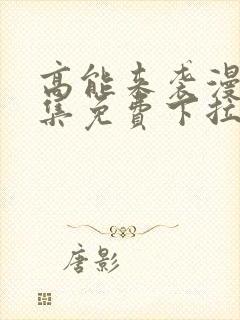 高能来袭漫
集免費下拉
唐影